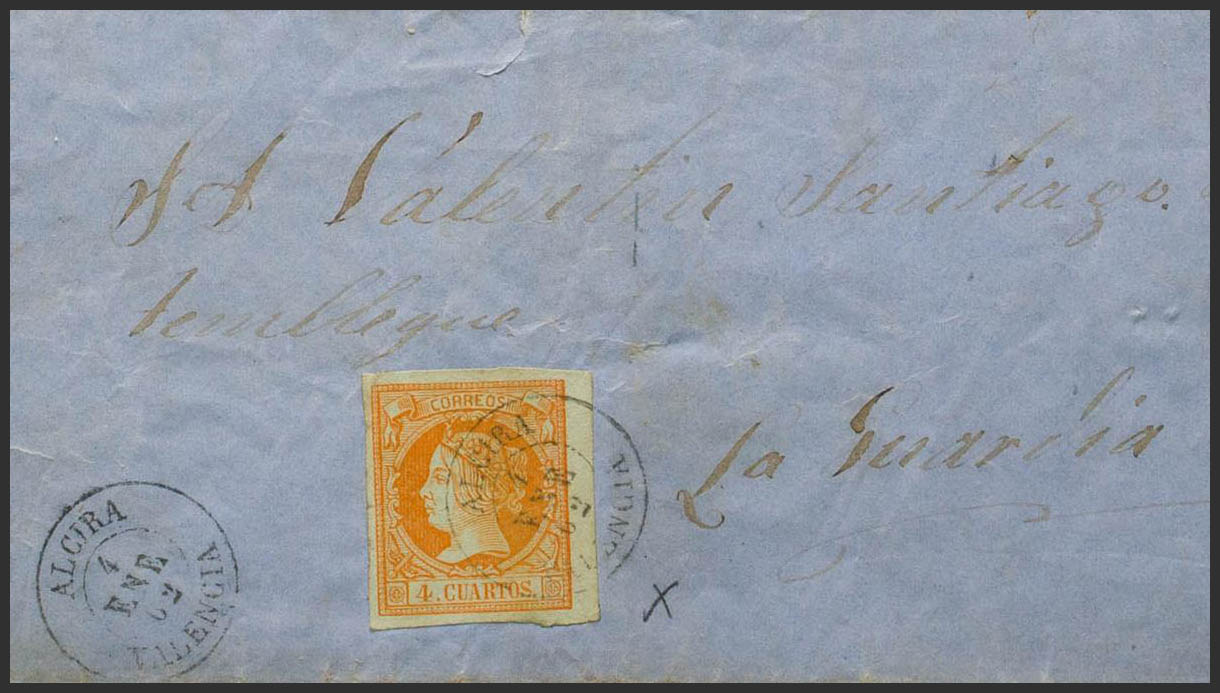 S S Valentin Santiago.
temblleque
La Guardia
CORREOS
4. CUARTOS.
ALCIRA
4
ENE
62
VALENCIA
ALCIRA
4
ENE
62
VALENCIA
X